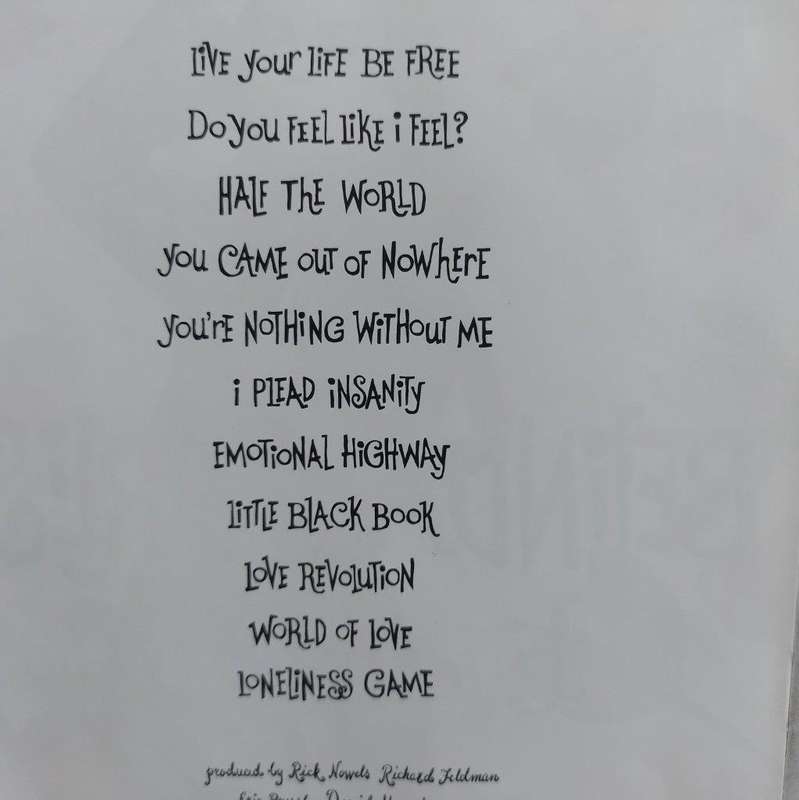 LiVE your LiFE BE FREE
Do you FEEL LiKE i FEEL?
HALF THE WORLD
you CAME OUT OF NOWHERE
you're NOTHiNG WiTHOUT ME
i PLEAD iNSANiTy
EMOTiONAL HiGHWAy
LiTTLE BLACK BOOK
LOVE REVOLUTiON
WORLD OF LOVE
LONELiNESS GAME
produced by Rick Nowels Richard Feldman